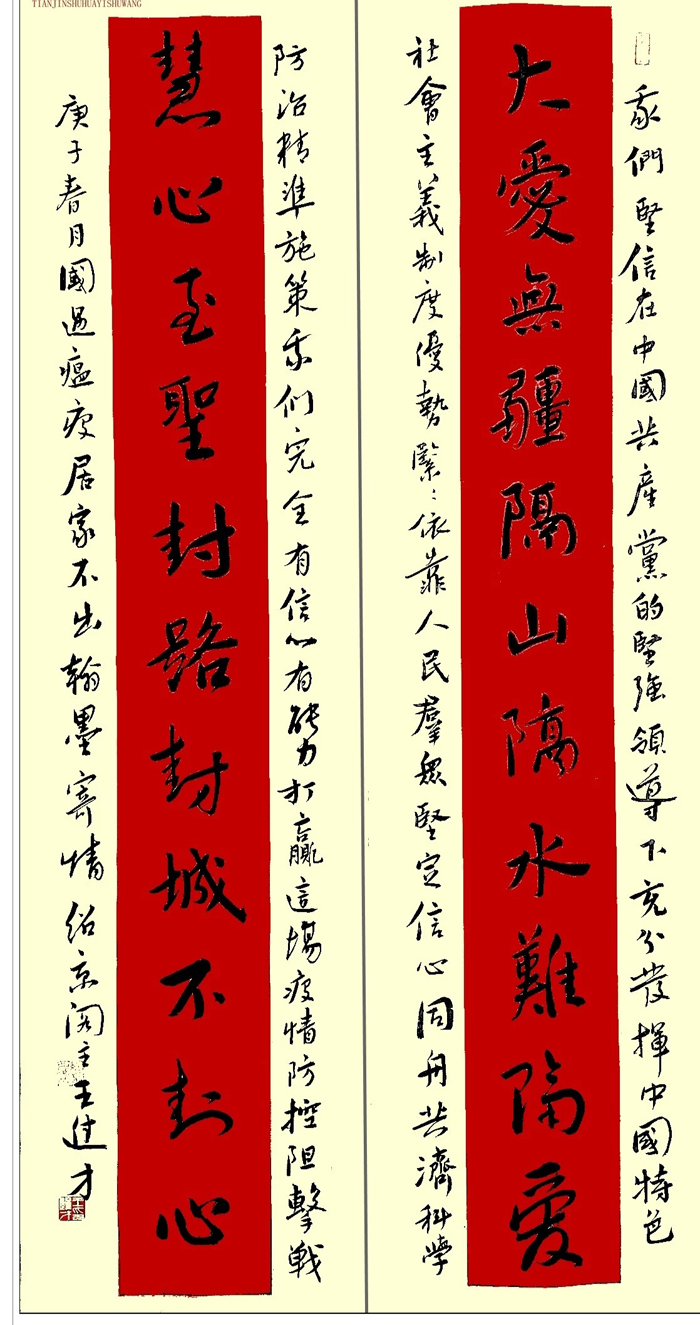 TIANJINSHUHUAYISHUWANG
我們堅信在中國共產黨的堅強領導下充分發揮中國特色
大愛無疆隔山隔水難隔愛
社會主義制度優勢緊〻依靠人民羣眾堅定信心同舟共濟科學
防治精準施策我们完全有信心有能力打贏這場疫情防控阻擊戰
慧心至聖封路封城不封心
庚子春月國遇瘟疫居家不出翰墨寄情紹京閣主王建才